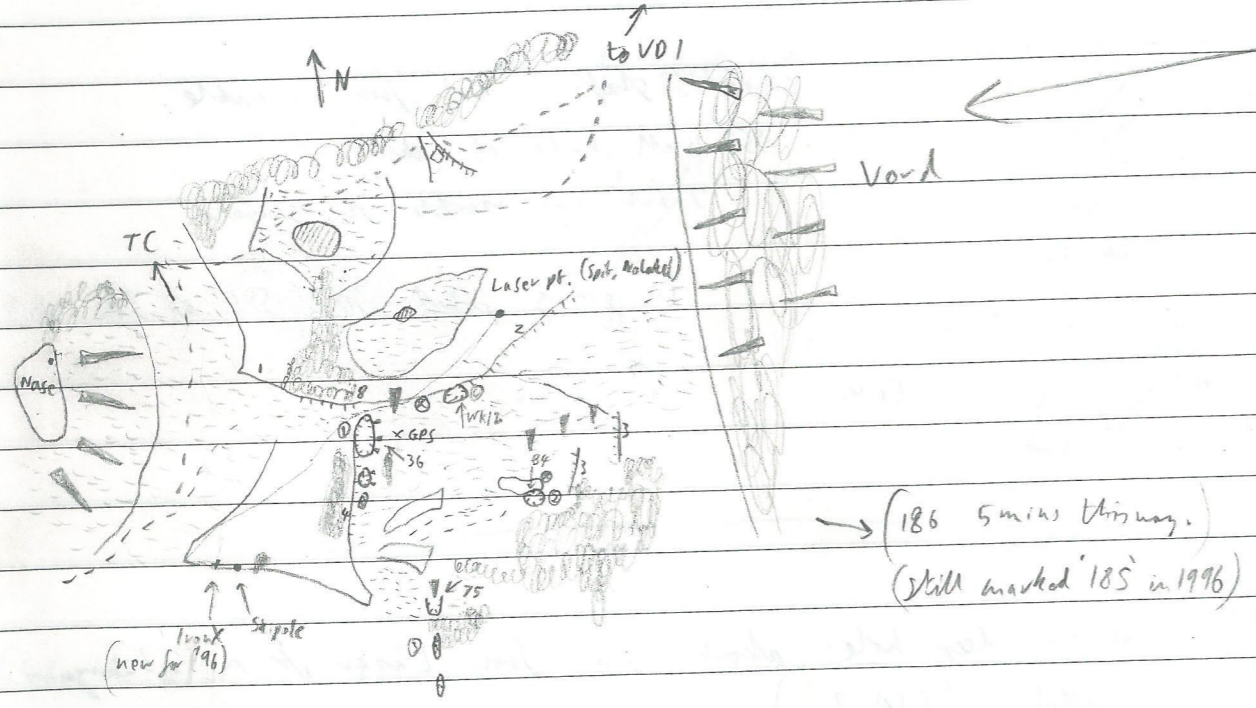 to VD1
N
Vord
TC
Laser pt. (spit, bolted)
2
Nase
1
8
WK/2
1
x GPS
36
3
84
3
2
4
186 5 mins this way.
(still marked '185' in 1996)
75
Iron X
Ski pole
(new for '96)